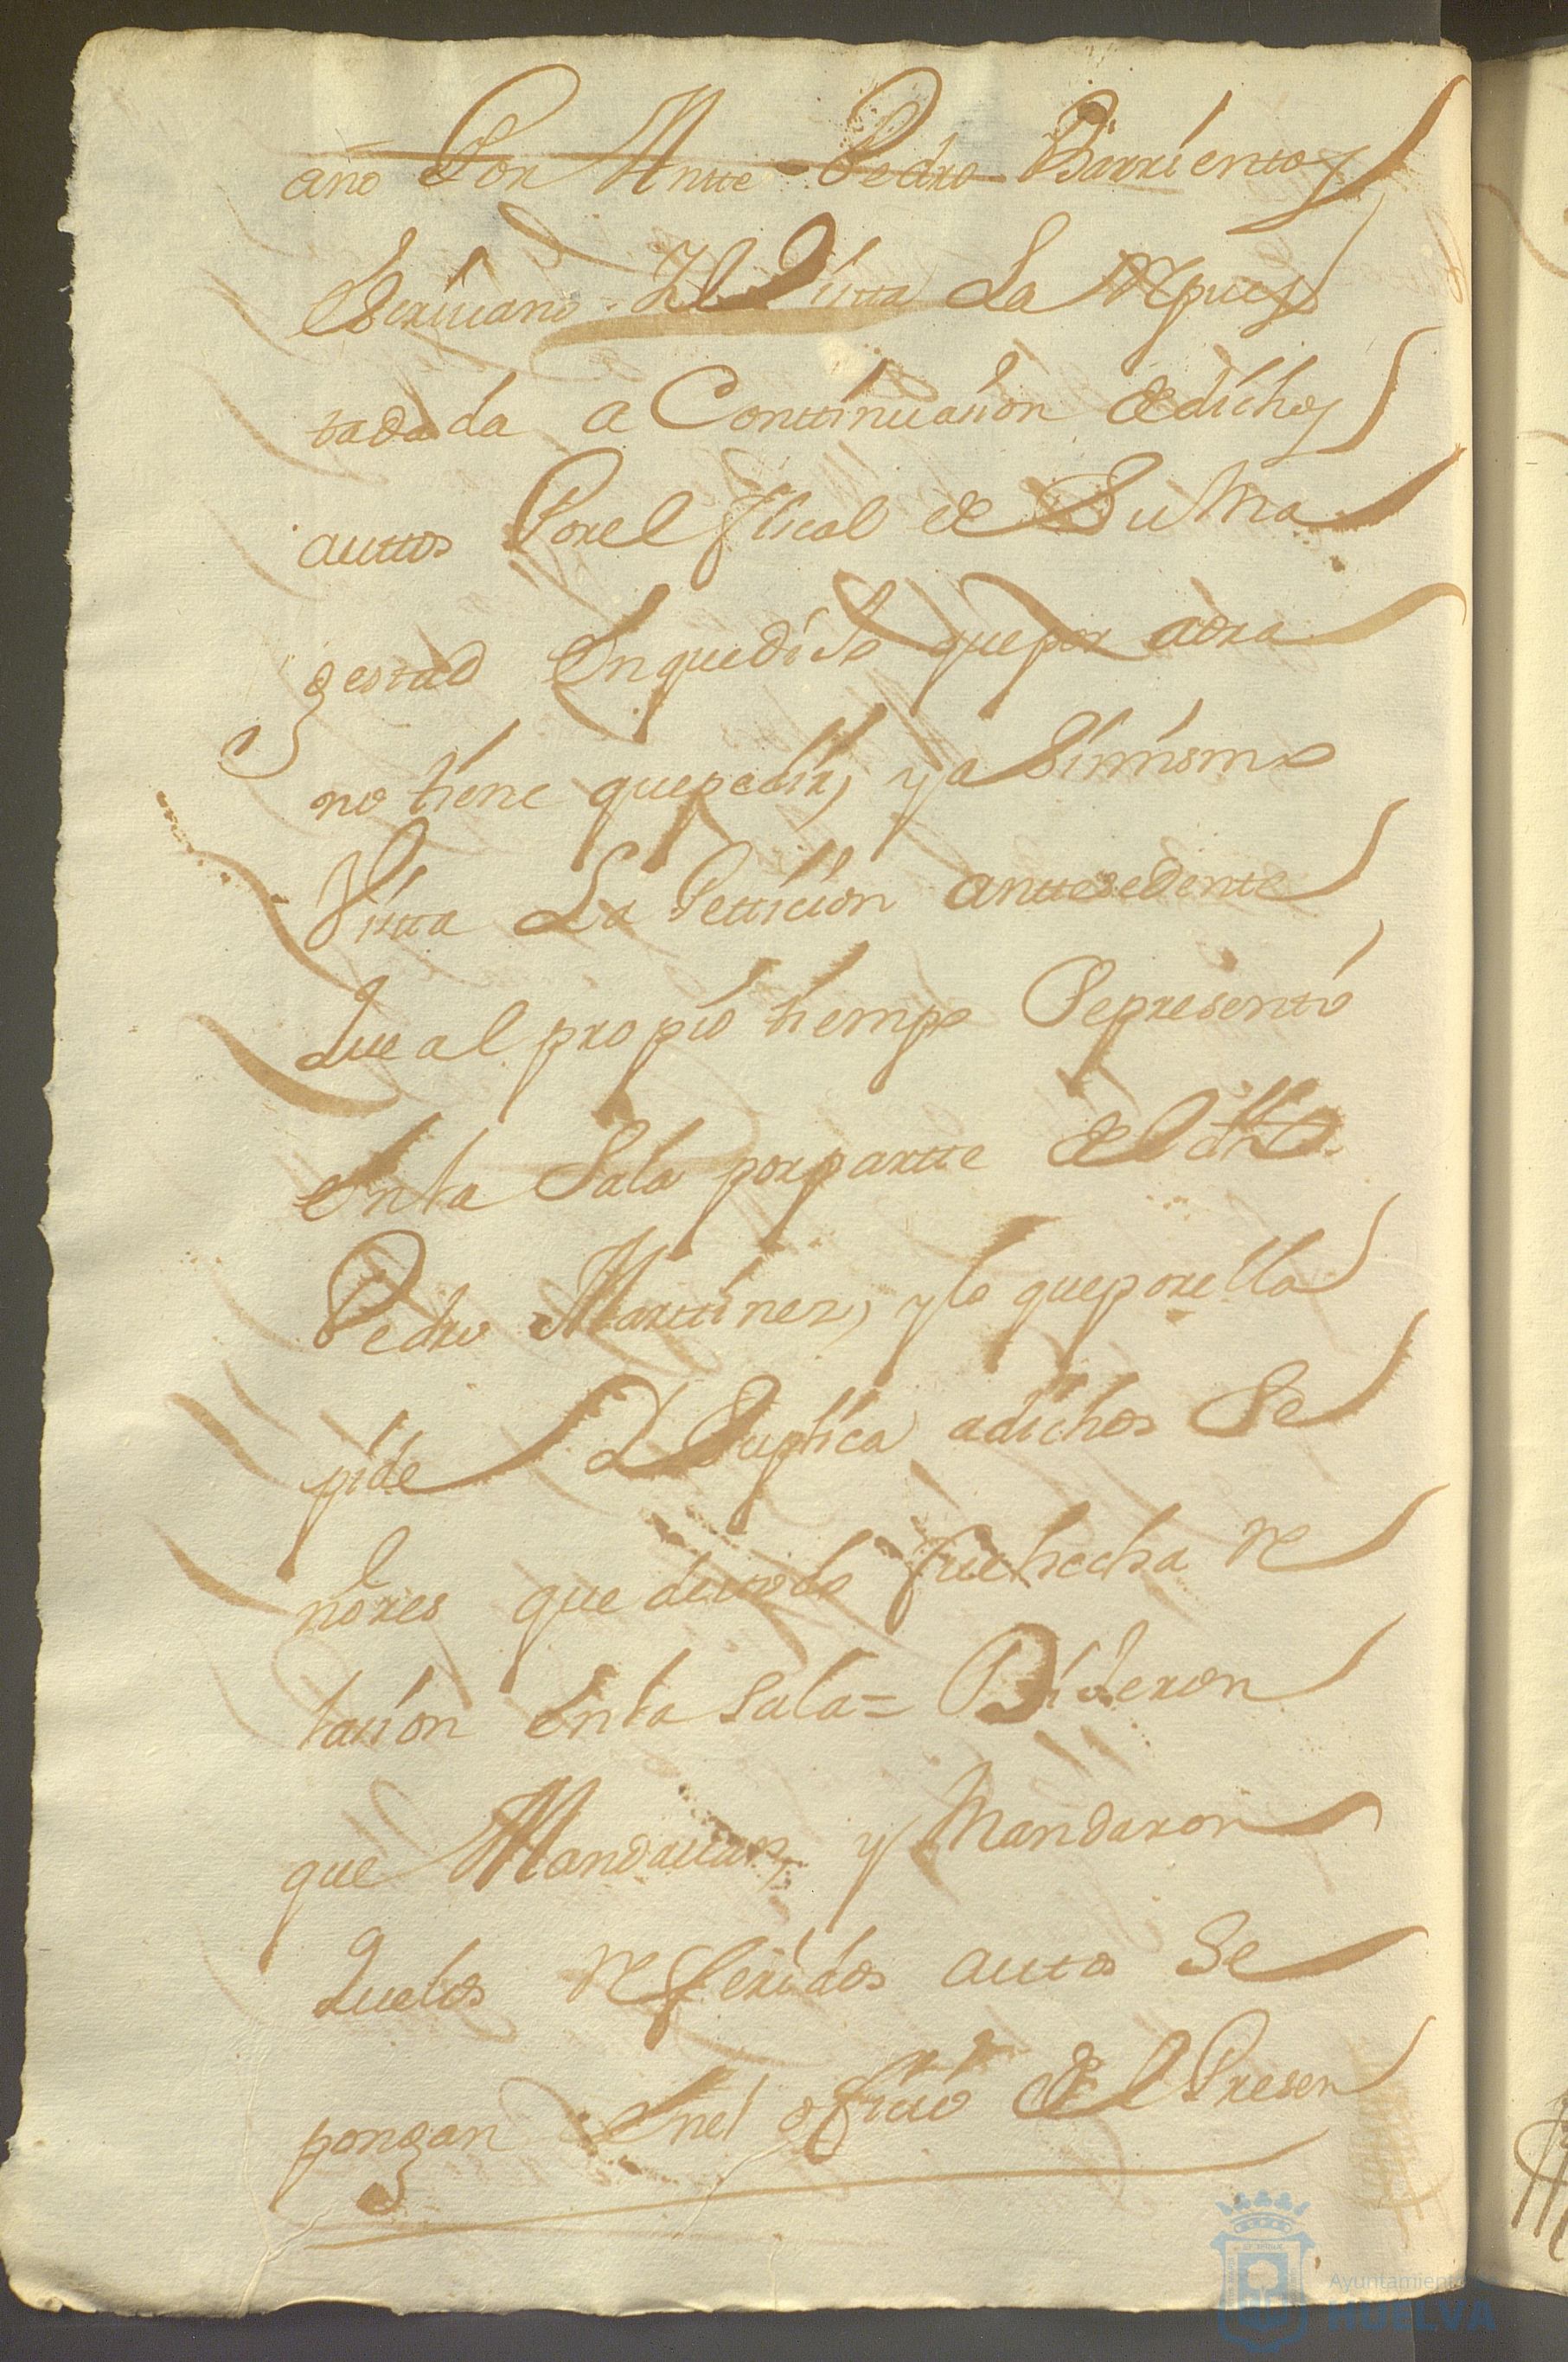 año Por Antte Pedro Barrientos
Escriuano El Vistta La Respues
tadada a Conttinuacion dedichos
auttos Porel fiscal de Su Ma
gestad En que dijo que por aora
no tiene que pedir, y a Simismo
Vistta La Petticion anttesedentte
Que al propio tiempo Sepresento
en la Sala por partte del dho
Pedro Marttinez, y lo que por ella
pide Suplica adichos Se
ñores que de todo fue hecha re
lacion en la sala = Dixeron
que Mandauan, y Mandaron
Quelos referidos auttos Se
pongan Enel oficio del Presen
Ayuntamiento
HUELVA